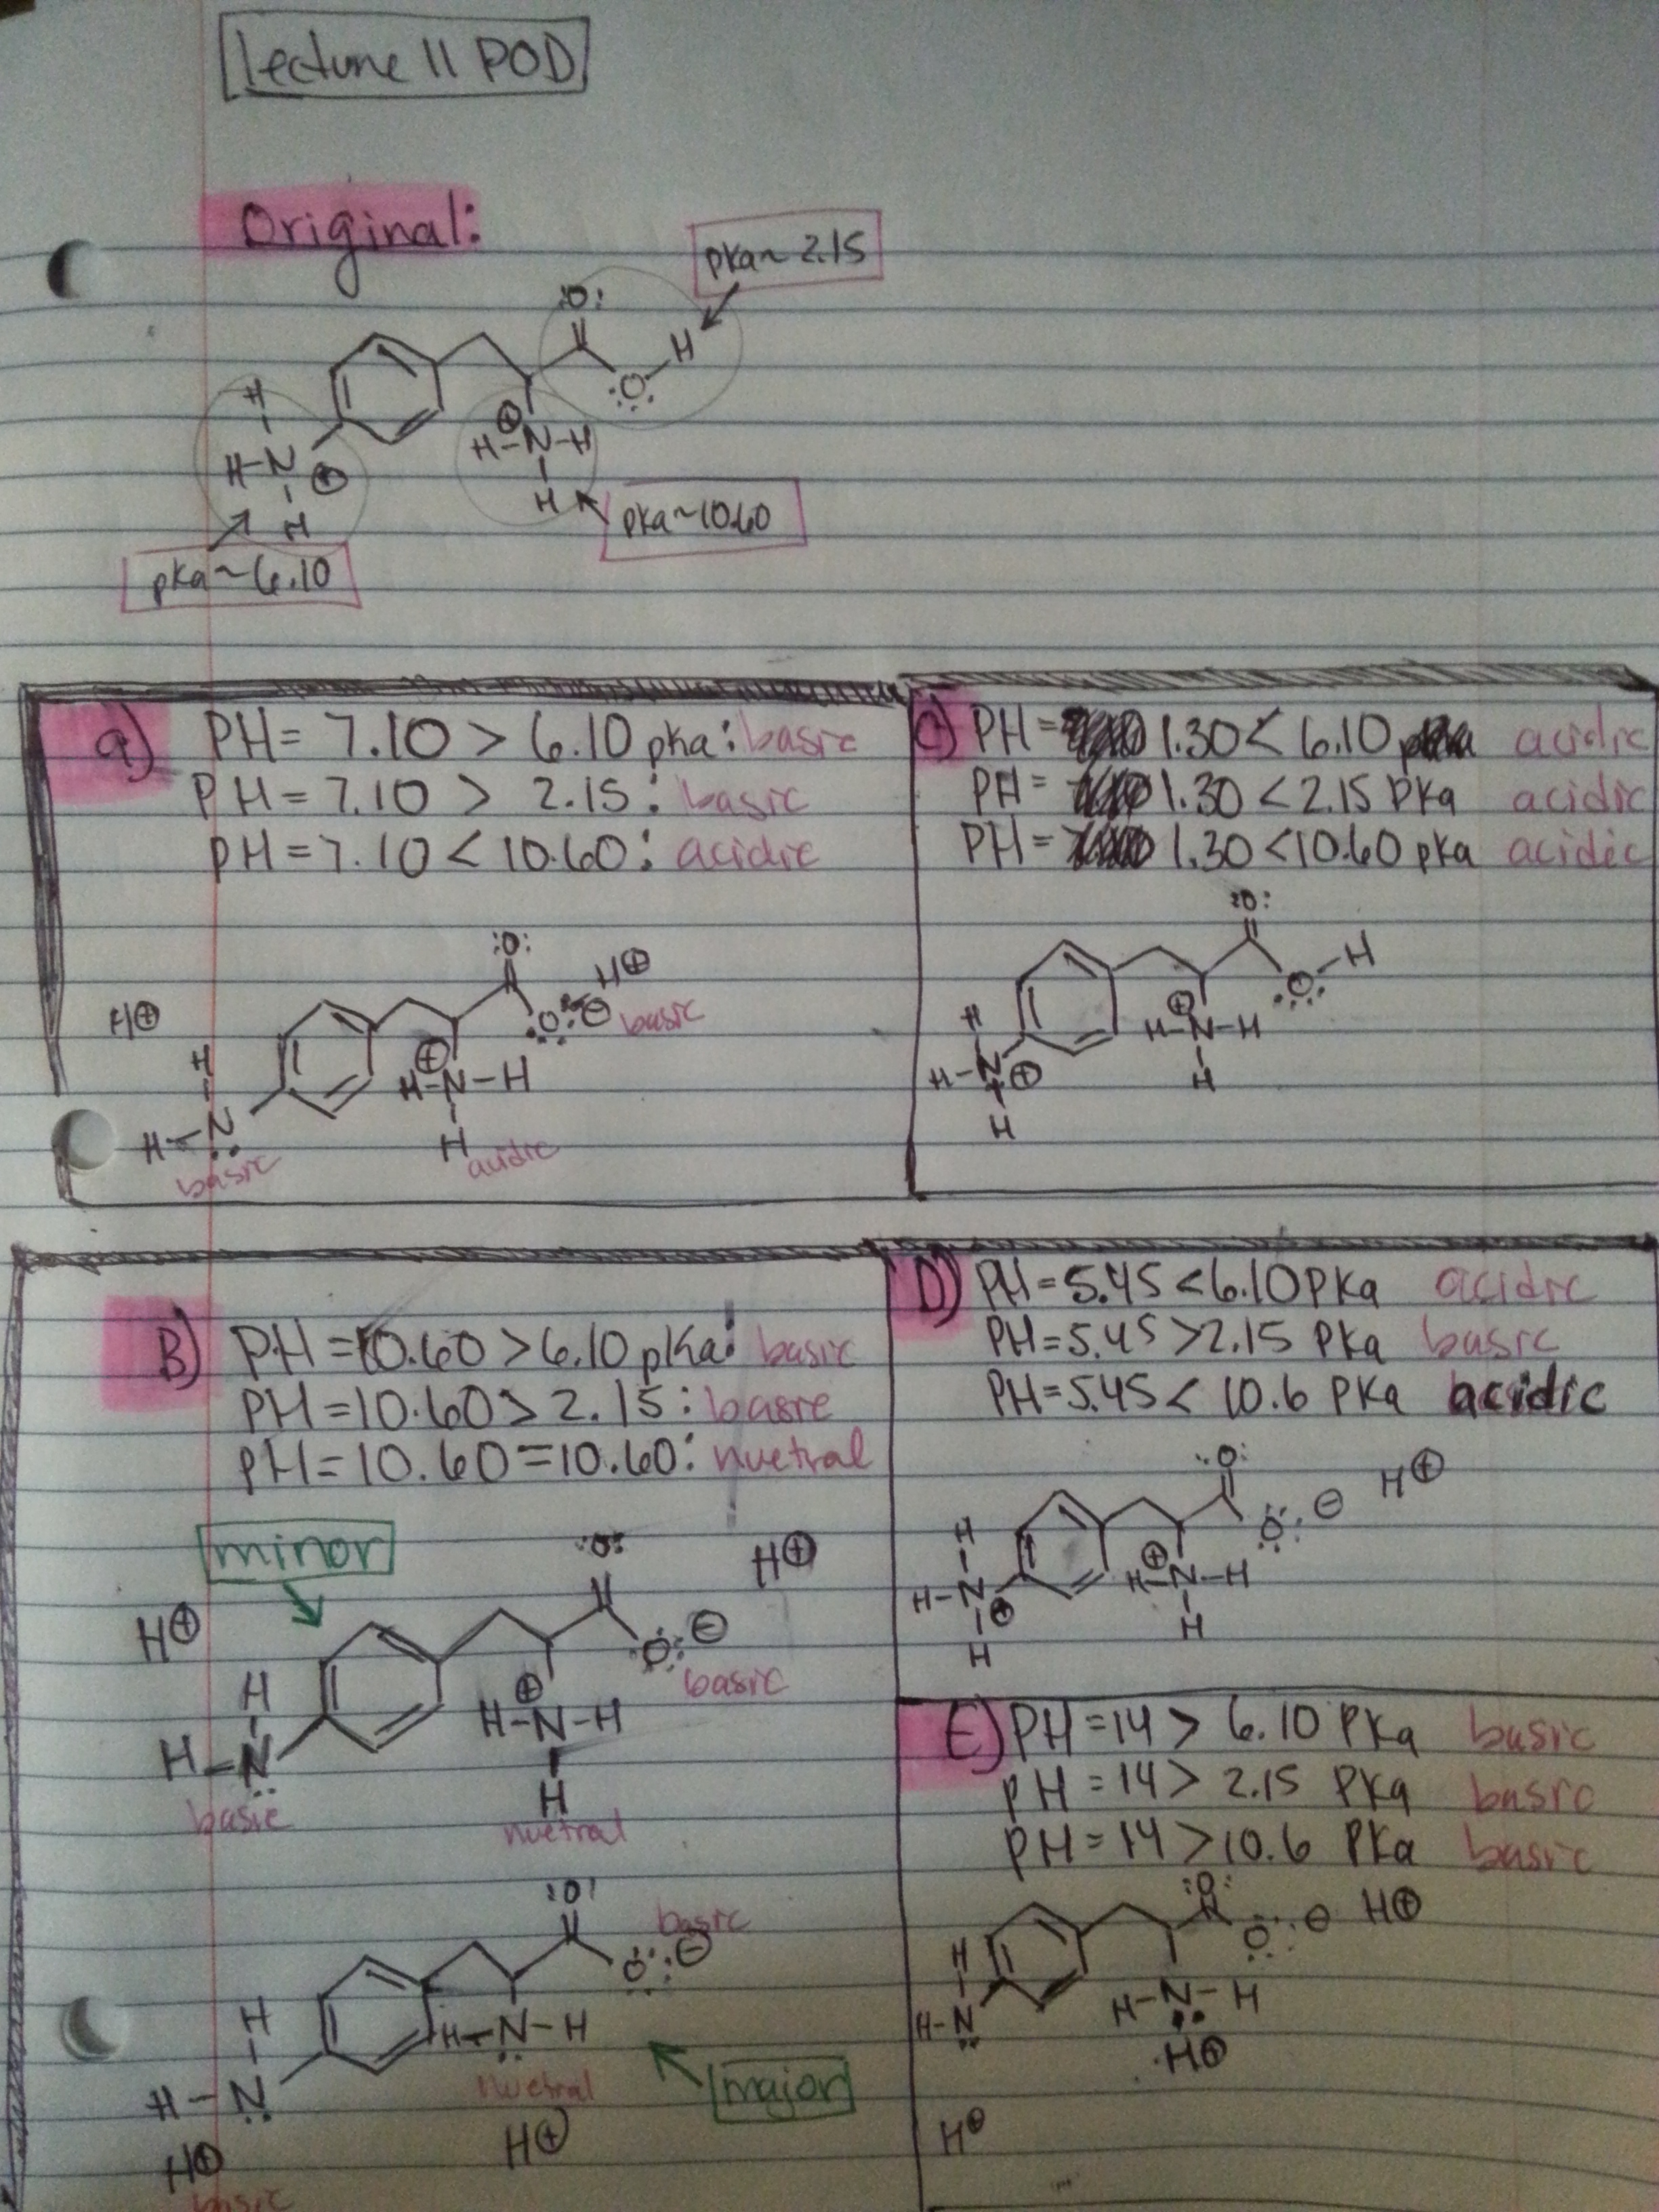 Lecture 11 POD
Original:
pka~ 2.15
:O:
H
O
H
H-N ⊕
H
⊕
H-N-H
H
pka~10.60
pka~6.10
a) PH= 7.10 > 6.10 pka: basic
PH=7.10 > 2.15: basic
pH=7.10 < 10.60: acidic
:O:
H⊕
O ⊖ basic
H⊕
H
H-N
basic
⊕
H-N-H
H
acidic
C) PH= 1.30 < 6.10 pka acidic
PH= 1.30 < 2.15 PKa acidic
PH= 1.30 <10.60 pKa acidic
:O:
O-H
H
H-N ⊕
H
⊕
H-N-H
H
B) PH=10.60 > 6.10 pKa: basic
PH=10.60 > 2.15: basic
pH=10.60=10.60: nuetral
minor
:O:
H⊕
H⊕
O ⊖
basic
H
H-N
basic
⊕
H-N-H
H
nuetral
:O:
basic
O ⊖
H
H-N
H-N-H
nuetral
major
H⊕
H⊕
basic
D) PH=5.45 <6.10 PKa acidic
PH=5.45 >2.15 PKa basic
PH=5.45 < 10.6 PKa acidic
:O:
H⊕
O ⊖
H
H-N
⊕
H
⊕
H-N-H
H
E) PH=14 > 6.10 PKa basic
pH=14 > 2.15 PKa basic
PH=14 >10.6 PKa basic
:O:
O ⊖ H⊕
H
H-N
H-N-H
H⊕
H⊕